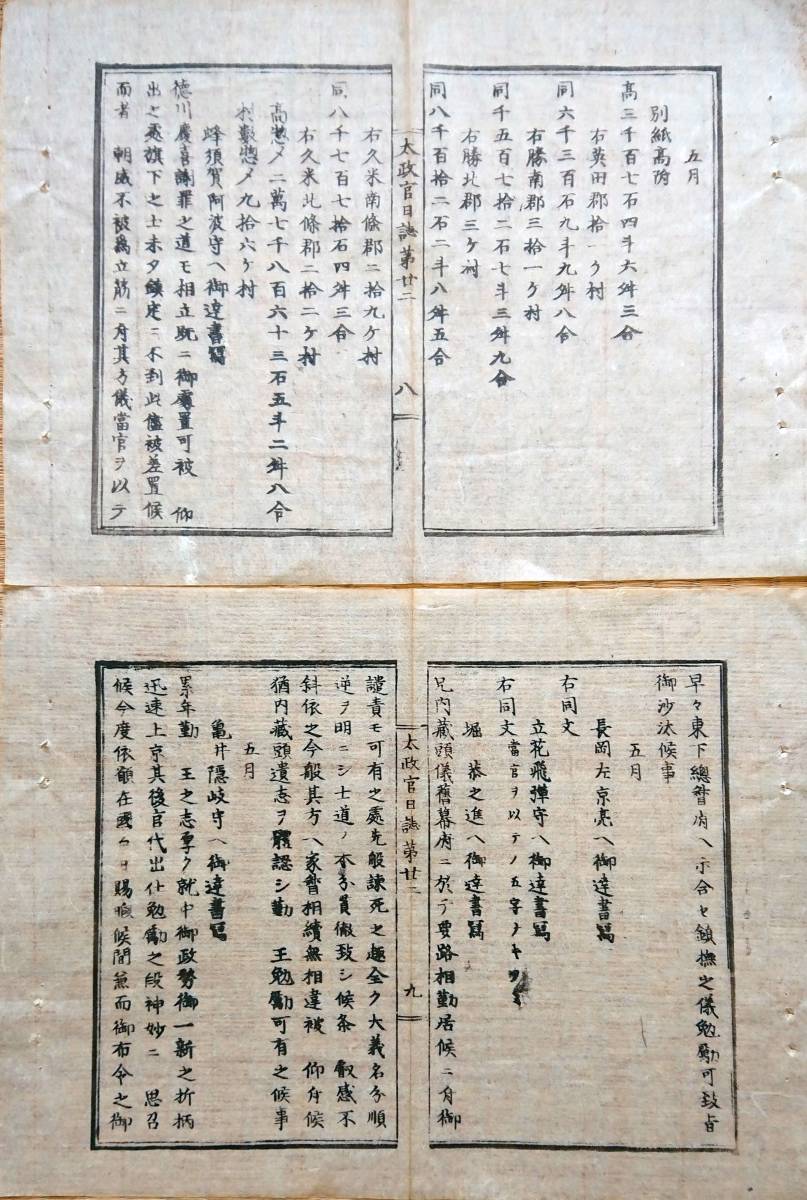 五月
別紙高附
高三千百七石四斗六舛三合
右英田郡拾一ケ村
同六千三百石九斗九舛八合
右勝南郡三拾一ケ村
同千五百七拾二石七斗三舛九合
右勝北郡三ケ村
同八千百拾二石二斗八舛五合
太政官日誌第廿二
八
右久米南條郡二拾九ケ村
同八千七百七拾石四舛三合
右久米北條郡二拾二ケ村
高惣〆二萬七千八百六十三石五斗二舛八合
村數惣〆九拾六ケ村
蜂須賀阿波守ヘ御達書寫
德川慶喜謝罪之道モ相立既ニ御處置可被 仰
出之處旗下之士未タ鎮定ニ不到此儘被差置候
而者 朝威不被爲立筋ニ付其方儀當官ヲ以テ
早々東下總督府ヘ示合セ鎮撫之儀勉勵可致旨
御沙汰候事
五月
長岡左京亮ヘ御達書寫
右同文
立花飛彈守ヘ御達書寫
右同文當官ヲ以テノ五字ナキヲ
堀 恭之進ヘ御達書寫
兄內藏頭儀舊幕府ニ於テ要路相勤居候ニ付御
太政官日誌第廿二
九
譴責モ可有之處先般諫死之趣全ク大義名分順
逆ヲ明ニシ士道ノ本分貫徹致シ候条 叡感不
斜依之今般其方ヘ家督相續無相違被 仰付候
猶內藏頭遺志ヲ體認シ勤 王勉勵可有之候事
五月
龜井隱岐守ヘ御達書寫
累年勤 王之志厚ク就中御政勢御一新之折柄
迅速上京其後官代出仕勉勵之段神妙ニ 思召
候今度依願在國之日賜暇候間兼而御布令之御